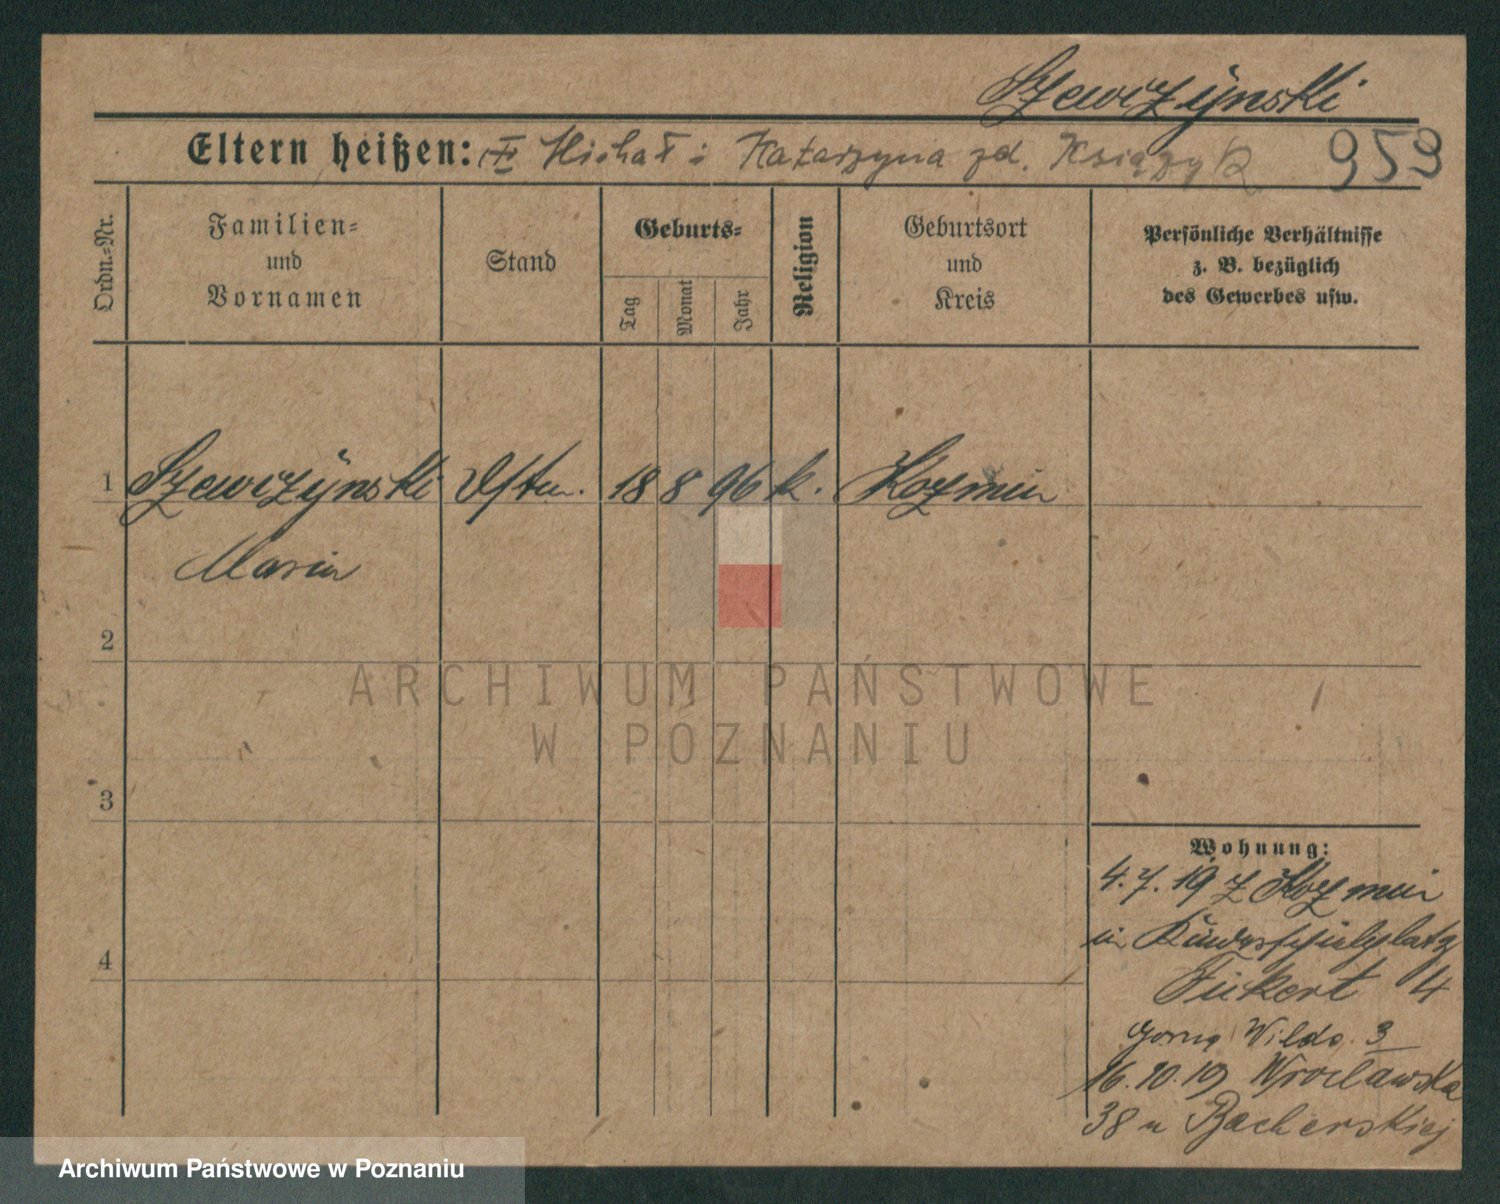 Szewczÿnski
Eltern heißen: Michał i Katarzyna zd. Książyk 953
Ordn.-Nr.
Familien-
und
Vornamen
Stand
Geburts-
Tag
Monat
Jahr
Religion
Geburtsort
und
Kreis
Persönliche Verhältnisse
z. B. bezüglich
des Gewerbes usw.
1 Szewczÿnski 18 8 96 k. Kozmin
Marin
2
ARCHIWUM PAŃSTWOWE
W POZNANIU
3
4
Wohnung:
4.7.19 z Kozmin
in
Fickert 4
Gorna Wilda 3
16.10.19 Wrocławska
38 u Bacherskiej
Archiwum Państwowe w Poznaniu